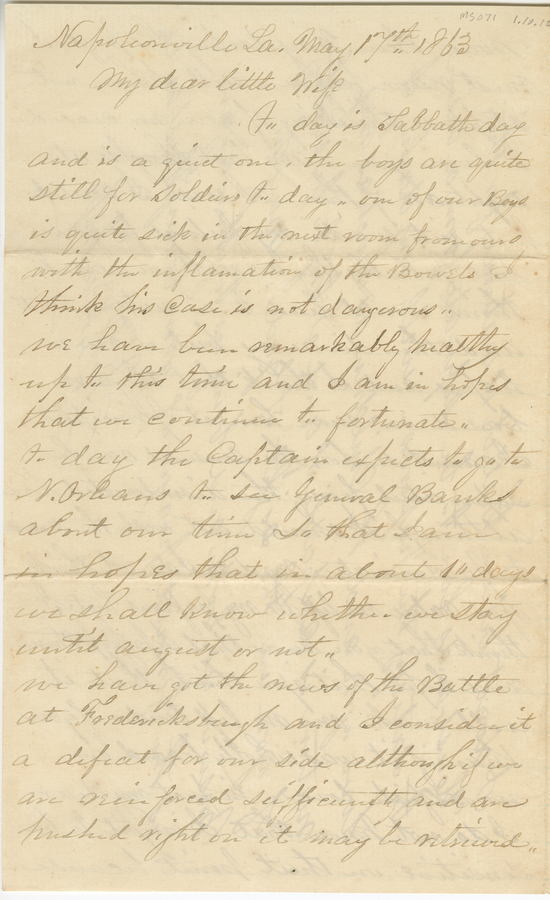 MS071 1.10.10
Napoleonville La. May 17th 1863
My dear little Wife
To day is Sabbath day
and is a quiet one. the boys are quite
still for soldiers to day. one of our Boys
is quite sick in the next room from ours
with the inflamation of the Bowels I
think his case is not dangerous.
we have been remarkably healthy
up to this time and I am in hopes
that we continue to fortunate.
to day the Captain expects to go to
N. Orleans to see General Banks
about our time so that I am
in hopes that in about 10 days
we shall know whether we stay
until august or not.
we have got the news of the Battle
at Fredericksburgh and I consider it
a defeat for our side although if we
are reinforced sufficiently and are
pushed right on it may be retrieved.